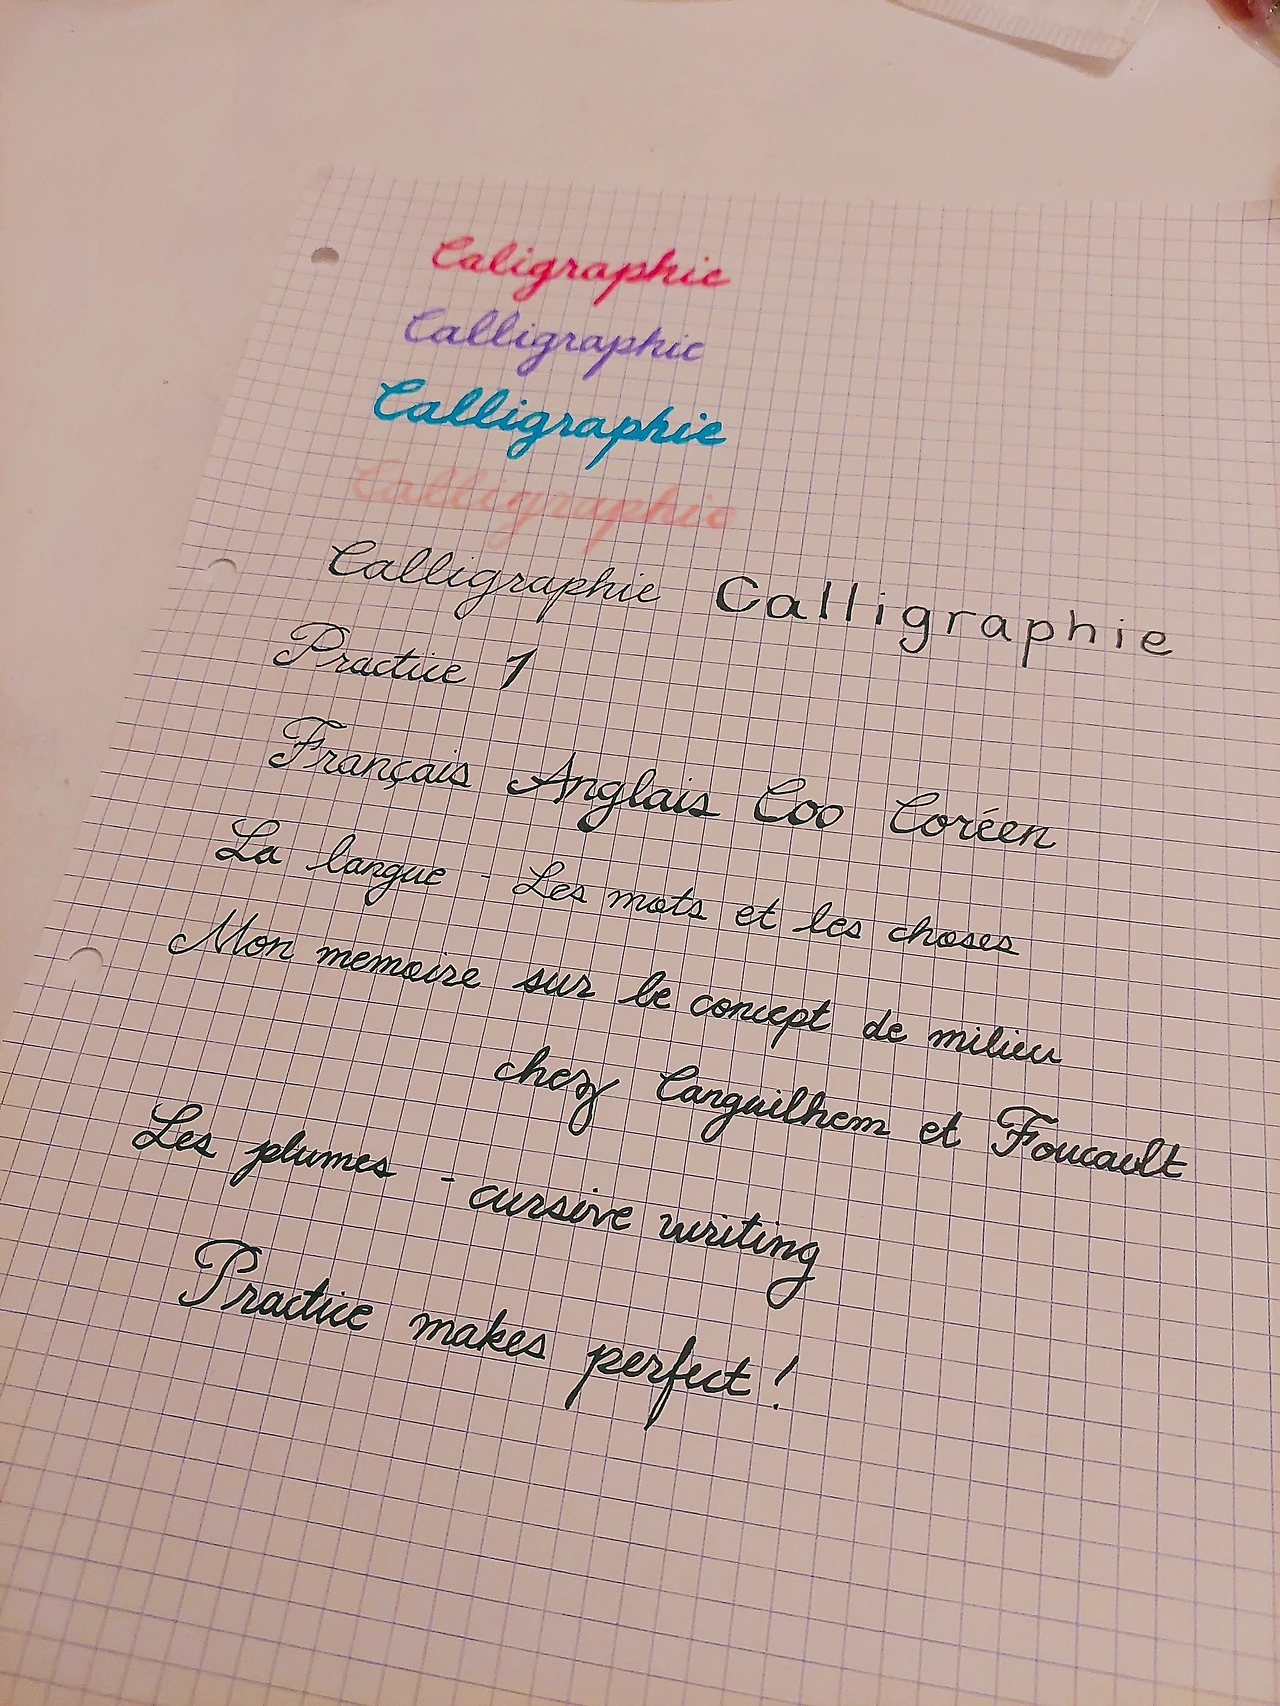 Caligraphie
Calligraphie
Calligraphie
Calligraphie
Calligraphie Calligraphie
Practice 1
Français Anglais Coo Coréen
La langue - Les mots et les choses
Mon memoire sur le concept de milieu
chez Canguilhem et Foucault
Les plumes - cursive writing
Practice makes perfect !